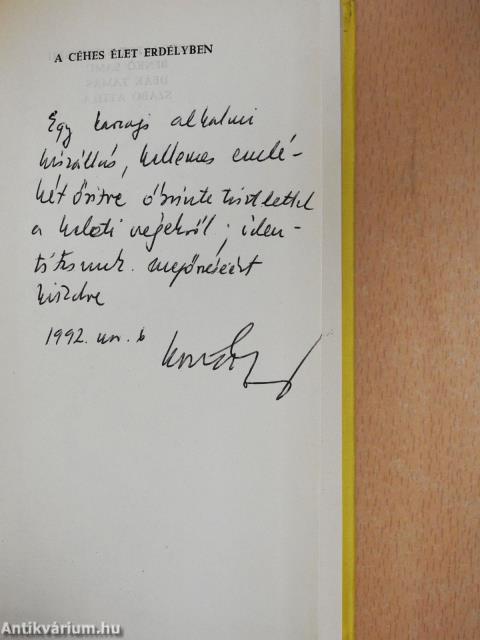 A CÉHES ÉLET ERDÉLYBEN
BENKŐ SAMU
DEÁK TAMÁS
SZABÓ ATTILA
Egy karcagi alkalmi
kiszállás, kellemes emlé-
két őrizve őszinte tisztelettel
a keleti végekről; iden-
titásunk megőrzéséért
küzdve
1992. nov. 6
Antikvárium.hu